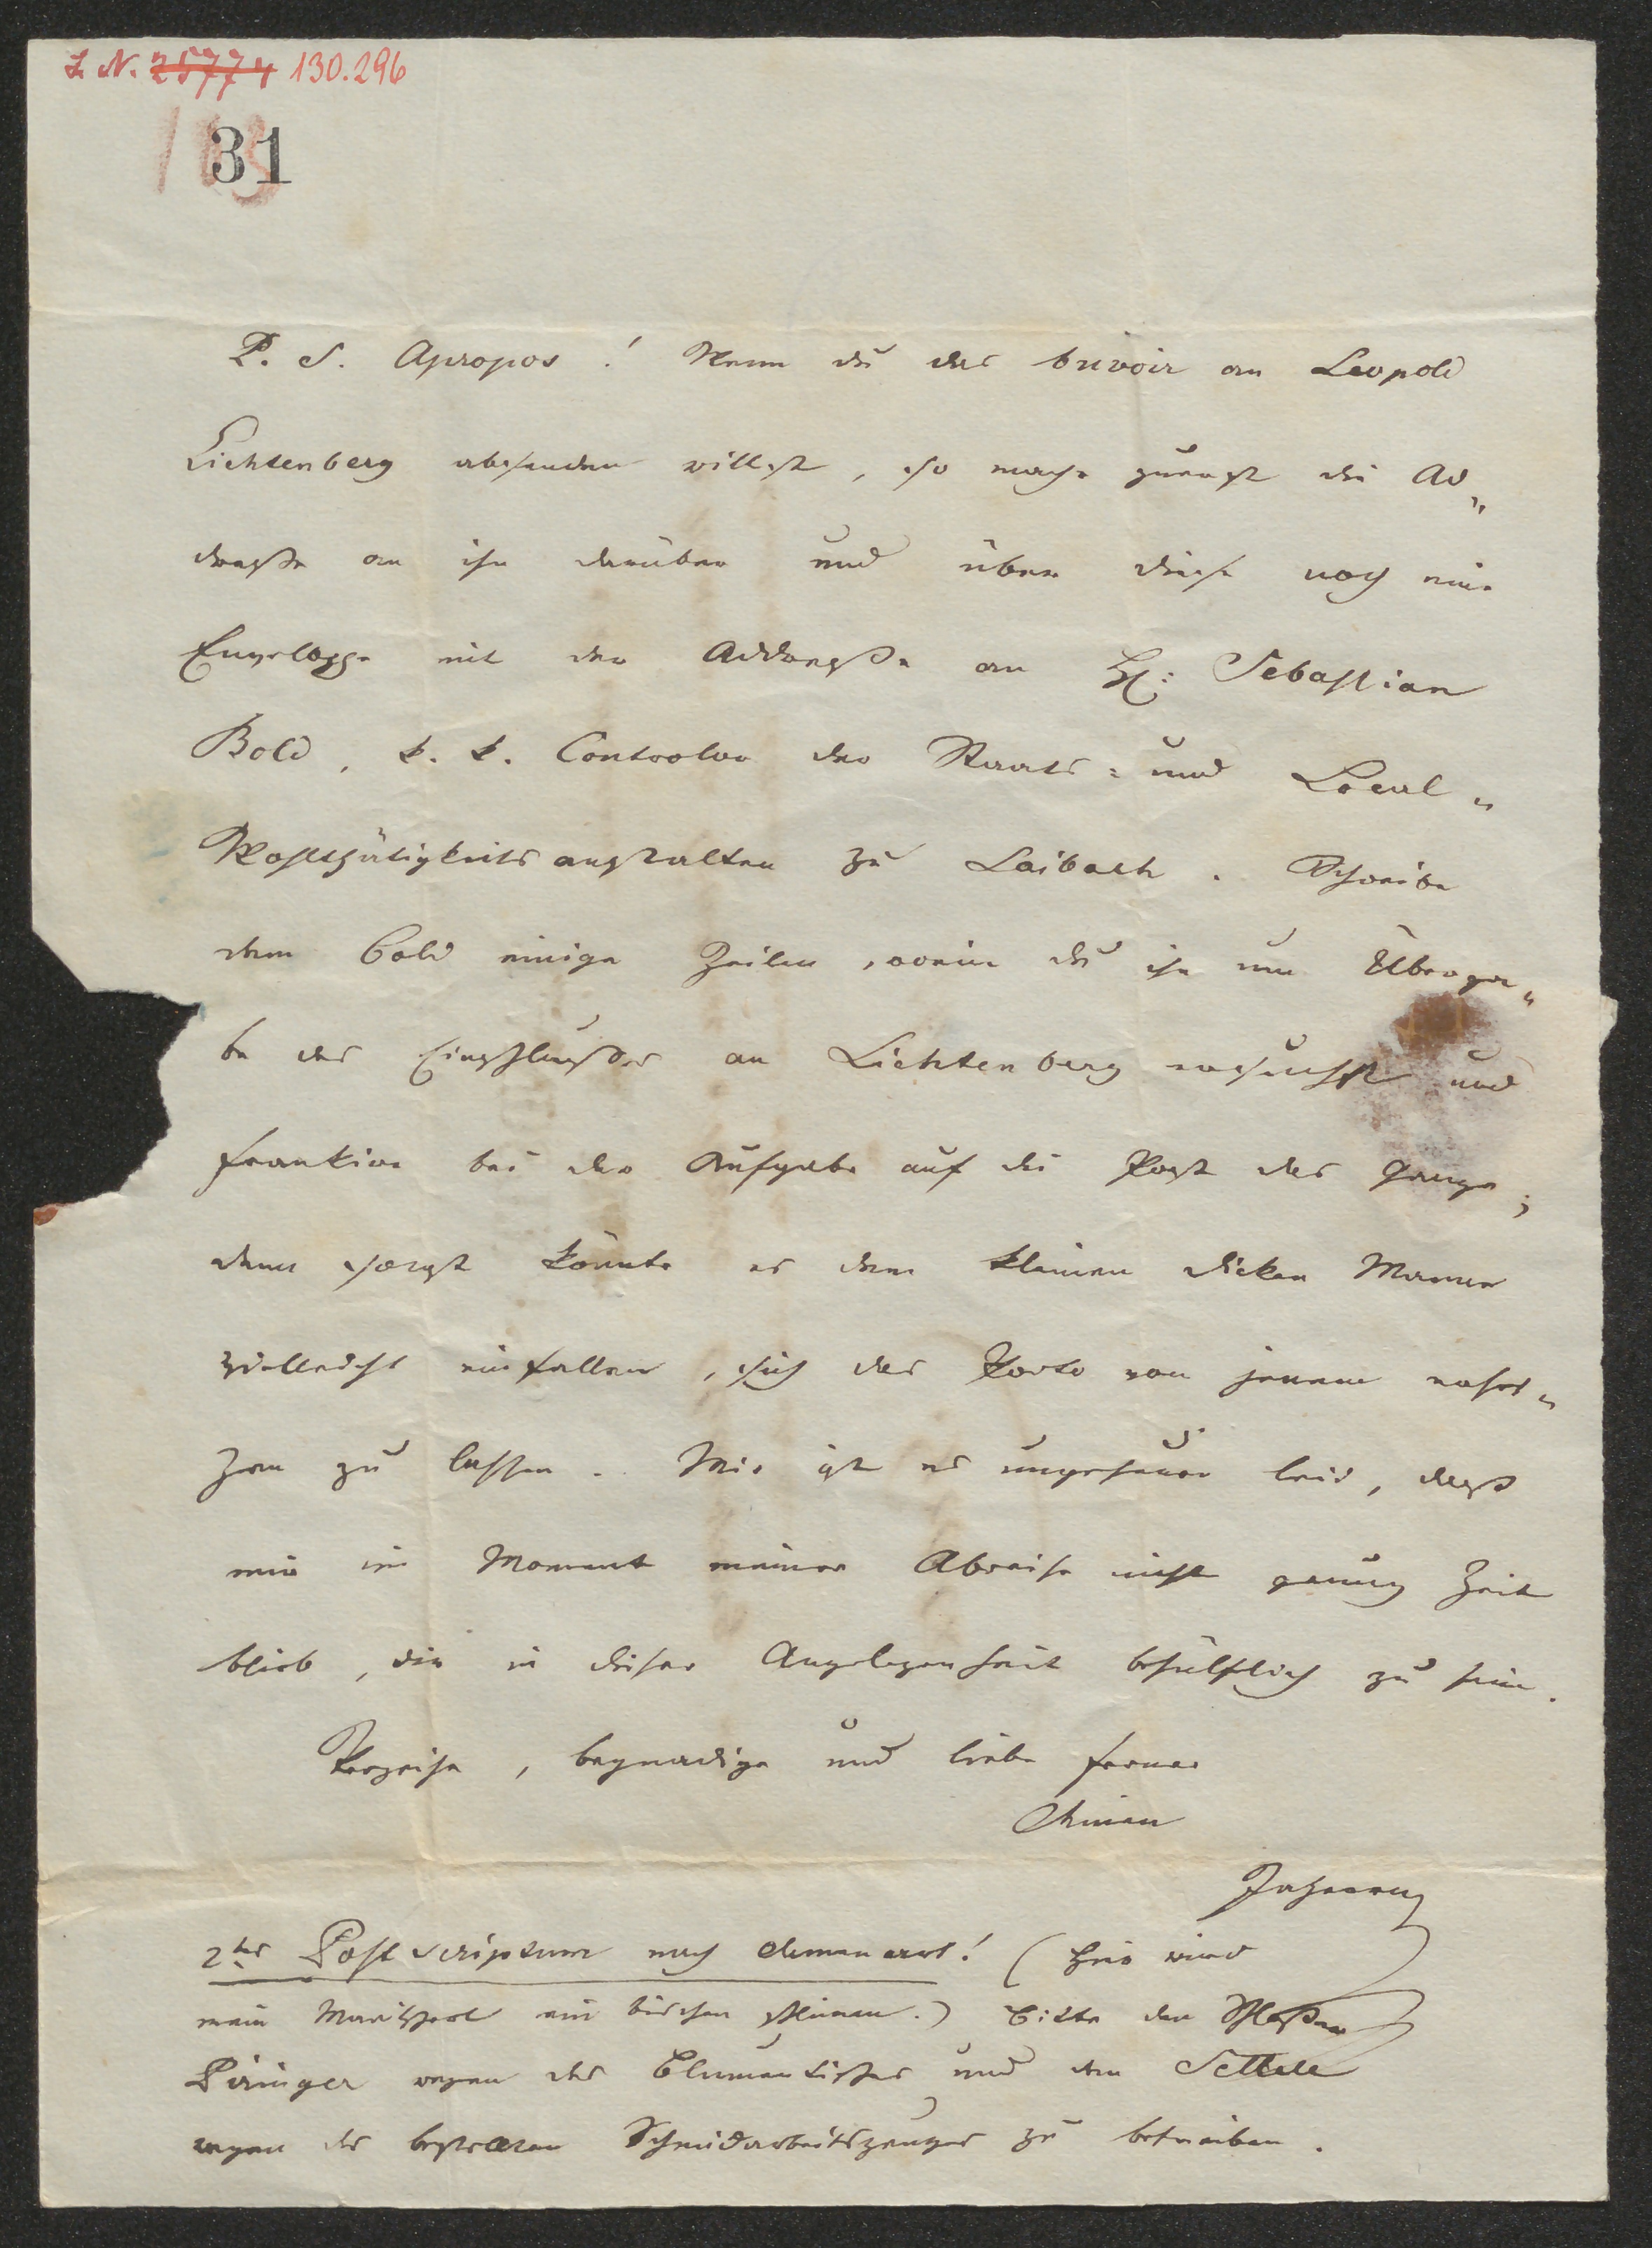 I. N. 25774 130.296
31
P. S. Apropos! Wenn du das buvoir an Leopold
Lichtenberg absenden willst, so mache zuerst die Ad„
dresse an ihn darüber und über diese noch eine
Enveloppe mit der Addresse an H: Sebastian
Bold, k. k. Controlor der Staats= und Local„
Wohlthätigkeitsanstalten zu Laibach. Schreibe
dem Bold einige Zeilen, worin du ihn um Überga„
be des Einschlusses an Lichtenberg ersuchst und
frankire bei der Aufgabe auf die Post das Ganze;
denn sonst könnte es dem kleinen dicken Manne
vielleicht einfallen, sich das Porto von jenem erset„
zen zu lassen. Mir ist es ungeheuer leid, daß
mir im Moment meiner Abreise nicht genug Zeit
blieb, dir in dieser Angelegenheit behülflich zu sein.
Verzeihe, begnadige und liebe ferner
Deinen
2tes Postscriptum nach Damenart! (Hier wird
mein ein bischen schmän.) Bitte den Schlosser
Piringer wegen des Blumentisches und den Settele
wegen des bestellten Schneidarbeitszeuges zu betreiben.